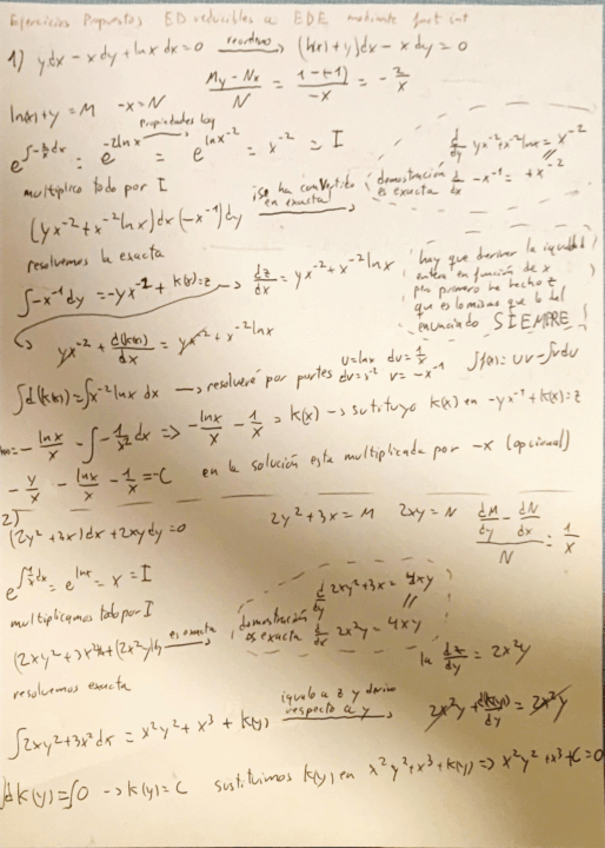 Ejercicios Propuestos ED reducibles a EDE mediante fact int
1) ydx - xdy + lnx dx = 0 reordeno → (ln(x)+y)dx - xdy = 0
ln(x)+y = M -x = N (My - Nx)/N = (1-(-1))/-x = -2/x
e^∫-2/x dx = e^-2lnx Propiedades log → = e^lnx^-2 = x^-2 = I
multiplico todo por I
(yx^-2 + x^-2 lnx)dx (-x^-1)dy ¡Se ha convertido en exacta! →
demostración es exacta
d/dy yx^-2 + x^-2 lnx = x^-2
d/dx -x^-1 = +x^-2
resolvemos la exacta
∫-x^-1 dy = -yx^-1 + k(x) = z → dz/dx = yx^-2 + x^-2 lnx
hay que derivar la igualdad
entera en función de x
pero primero he hecho z
que es lo mismo que lo del
enunciado SIEMPRE!
yx^-2 + d(k(x))/dx = yx^-2 + x^-2 lnx
∫d(k(x)) = ∫x^-2 lnx dx → resolveré por partes u=lnx du=1/x dv=x^-2 v=-x^-1 ∫f(x)= uv - ∫vdu
= -lnx/x - ∫-1/x² dx => -lnx/x - 1/x = k(x) → sutituyo k(x) en -yx^-1 + k(x) = z
-y/x - lnx/x - 1/x = -C en la solución esta multiplicada por -x (opcional)
2)
(2y² + 3x)dx + 2xydy = 0 2y² + 3x = M 2xy = N (dM/dy - dN/dx)/N = 1/x
e^∫1/x dx = e^lnx = x = I
multiplicamos todo por I
(2xy² + 3x²)dx + (2x²y)dy es exacta →
demostración es exacta
d/dy 2xy² + 3x = 4xy
d/dx 2x²y = 4xy
la dz/dy = 2x²y
resolvemos exacta
∫2xy² + 3x² dx = x²y² + x³ + k(y) igualo a z y derivo respecto a y → 2x²y + d(k(y))/dy = 2x²y
∫dk(y) = ∫0 → k(y) = C sustituimos k(y) en x²y² + x³ + k(y) => x²y² + x³ + C = 0